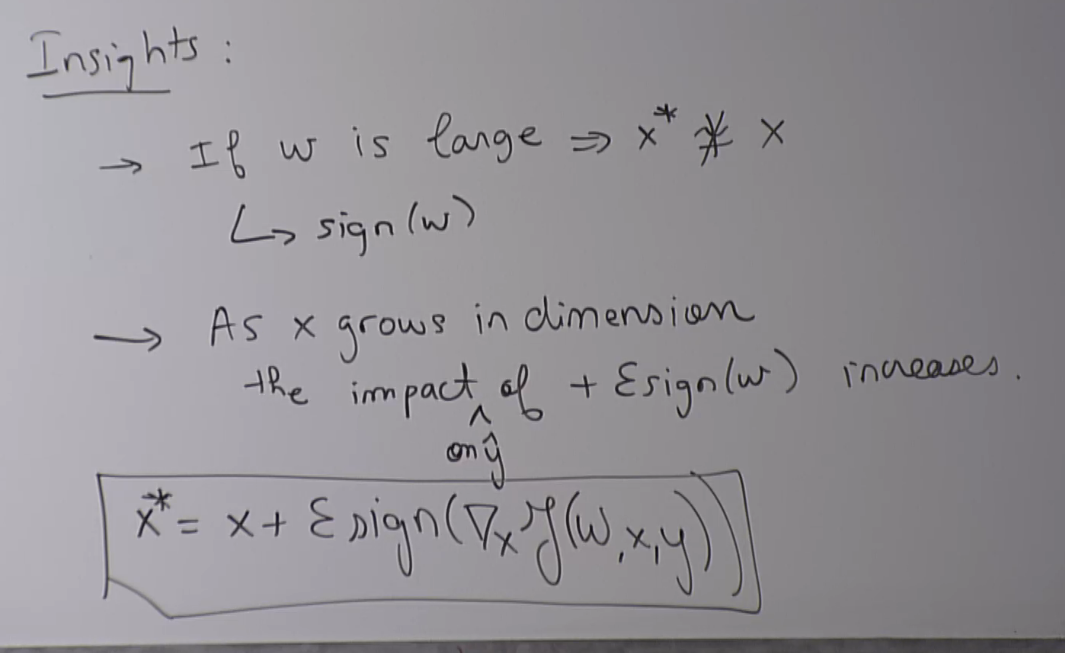 Insights:
→ If w is large ⇒ x* ≉ x
↳ sign(w)
→ As x grows in dimension
the impact ^ of + Ɛsign(w) increases.
on ŷ
x* = x + Ɛ sign(∇ₓ J(w,x,y))